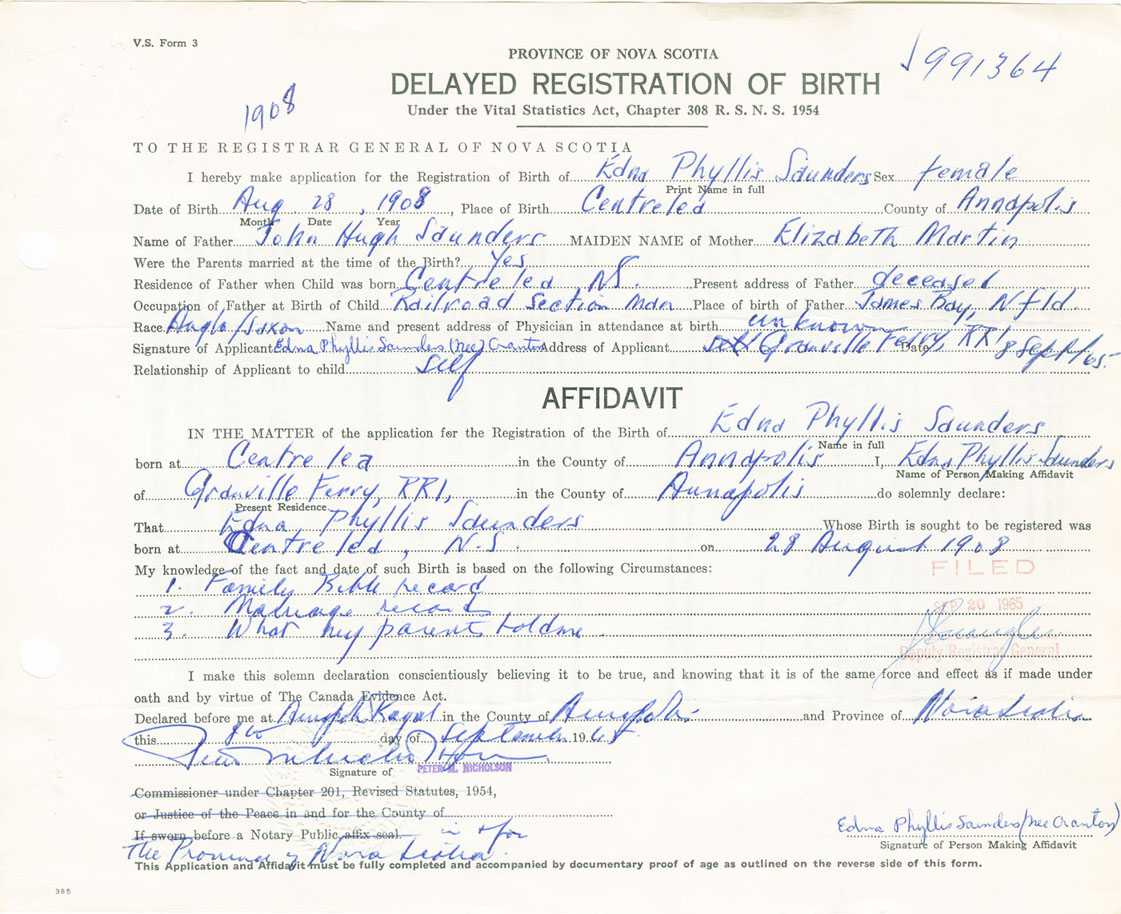 V.S. Form 3
PROVINCE OF NOVA SCOTIA
991364
DELAYED REGISTRATION OF BIRTH
1908
Under the Vital Statistics Act, Chapter 308 R. S. N. S. 1954
TO THE REGISTRAR GENERAL OF NOVA SCOTIA
I hereby make application for the Registration of Birth of Edna Phyllis Saunders Sex female
Print Name in full
Date of Birth Aug 28, 1908, Place of Birth Centrelea County of Annapolis
Month Date Year
Name of Father John Hugh Saunders MAIDEN NAME of Mother Elizabeth Martin
Were the Parents married at the time of the Birth? Yes
Residence of Father when Child was born Centrelea, NS. Present address of Father deceased
Occupation of Father at Birth of Child Railroad section man Place of birth of Father James Bay, Nfld.
Race Anglo/Saxon Name and present address of Physician in attendance at birth unknown
Signature of Applicant Edna Phyllis Saunders (nee) Cranton Address of Applicant Granville Ferry, RR1 Date 8 Sept/65.
Relationship of Applicant to child self
AFFIDAVIT
IN THE MATTER of the application for the Registration of the Birth of Edna Phyllis Saunders
Name in full
born at Centrelea in the County of Annapolis I, Edna Phyllis Saunders
Name of Person Making Affidavit
of Granville Ferry, RR1, in the County of Annapolis do solemnly declare:
Present Residence
That Edna Phyllis Saunders Whose Birth is sought to be registered was
born at Centrelea, N.S. on 28 August 1908
My knowledge of the fact and date of such Birth is based on the following Circumstances:
FILED
1. Family Bible record
2. Marriage record
SEP 20 1965
3. What my parents told me.
Deputy Registrar General
I make this solemn declaration conscientiously believing it to be true, and knowing that it is of the same force and effect as if made under
oath and by virtue of The Canada Evidence Act.
Declared before me at Annapolis Royal in the County of Annapolis and Province of Nova Scotia
this 8th day of September 1965
Signature of PETER M. NICHOLSON
Commissioner under Chapter 201, Revised Statutes, 1954,
or Justice of the Peace in and for the County of
If sworn before a Notary Public, affix seal. in & for
The Province of Nova Scotia.
Edna Phyllis Saunders (nee Cranton)
Signature of Person Making Affidavit
This Application and Affidavit must be fully completed and accompanied by documentary proof of age as outlined on the reverse side of this form.
385